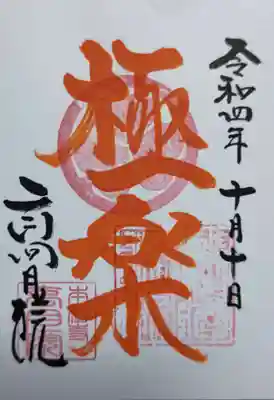 令和四年 十月十日
極楽
高月院